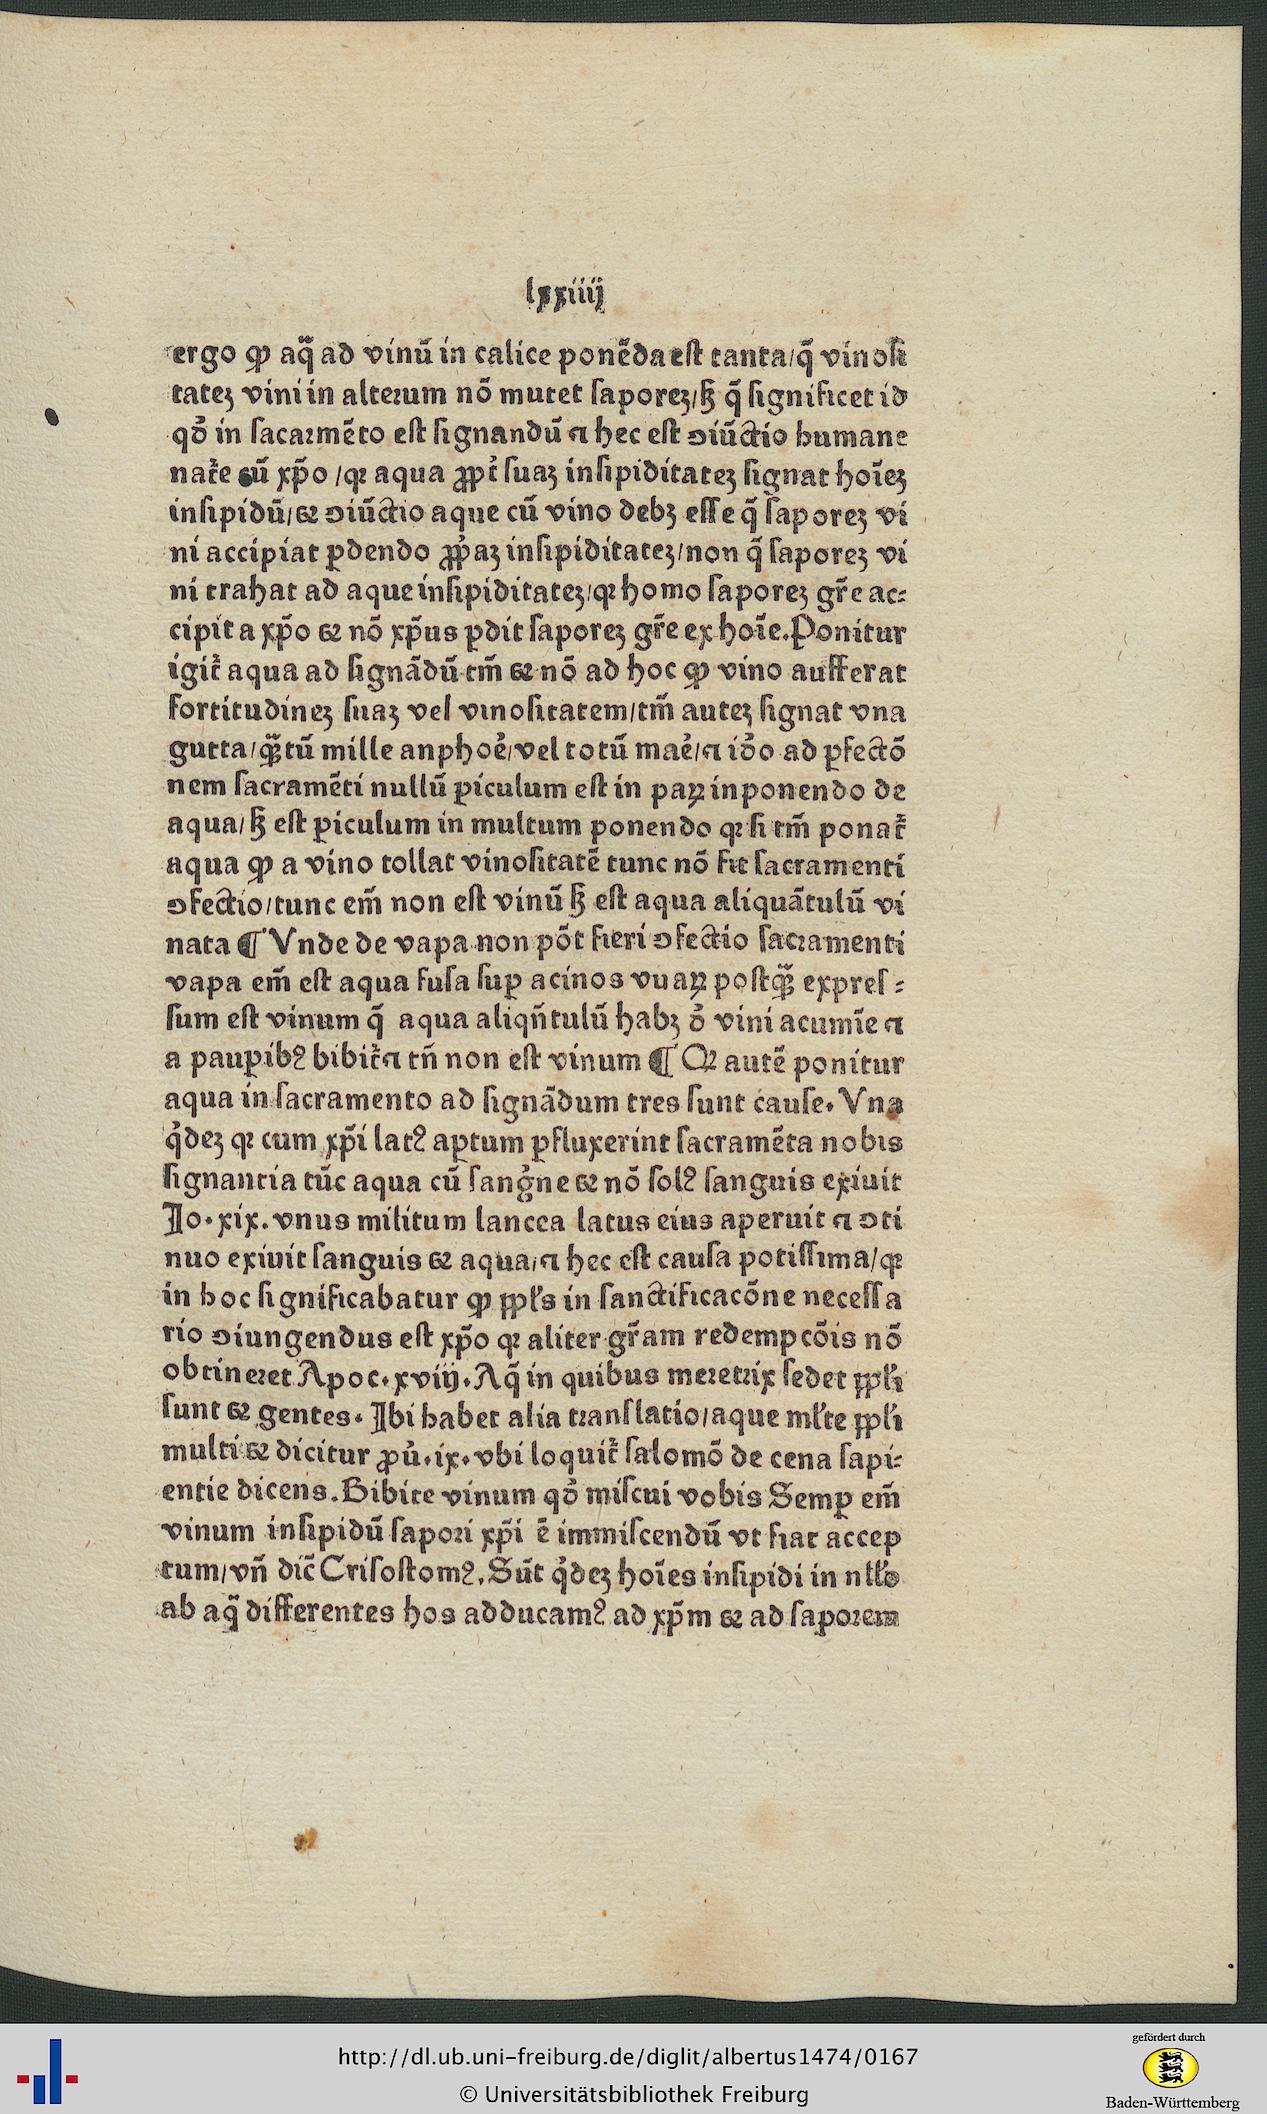 lxxiiij
ergo ꝙ aq̄ ad vinū in calice ponēda est tanta/q̄ vinosi
tatez vini in alterum nō mutet saporez/sz q̄ significet id
qd̓ in sacarmēto est signandū ⁊ hec est ꝯiūctio humane
nat̄e cū xp̄o /qꝛ aqua ꝓpt̄ suaz insipiditatez signat hoīez
insipidū/& ꝯiūctio aque cū vino debz esse q̄ saporez vi
ni accipiat ꝑdendo ꝓp̓az insipiditatez/non q̄ saporez vi
ni trahat ad aque insipiditatez/qꝛ homo saporez gr̄e ac⸗
cipit a xp̄o & nō xp̄us ꝑdit saporez gr̄e ex hoīe. Ponitur
igit̄ aqua ad signādū tm̄ & nō ad hoc ꝙ vino aufferat
fortitudinez suaz vel vinositatem/tm̄ autez signat vna
gutta/qꝫ̄tū mille anphoe᷒/vel totū mae᷒/⁊ iō̓o ad ꝑfectō
nem sacramēti nullū ꝑiculum est in paꝝ inponendo de
aqua/sz est ꝑiculum in multum ponendo qꝛ si tm̄ ponat̄
aqua ꝙ a vino tollat vinositatē tunc nō fit sacramenti
ꝯfectio/tunc em̄ non est vinū sz est aqua aliquātulū vi
nata ¶ Vnde de vapa non pōt fieri ꝯfectio sacramenti
vapa em̄ est aqua fusa suꝑ acinos vuaꝝ postqꝫ̄ expres⸗
sum est vinum q̄ aqua aliqn̄tulū habz d̓ vini acumīe ⁊
a pauꝑibꝰ bibit̄ ⁊ tn̄ non est vinum ¶ Qꝛ autē ponitur
aqua in sacramento ad signādum tres sunt cause. Vna
q̓dez qꝛ cum xp̄i latꝰ aꝑtum ꝑfluxerint sacramēta nobis
signantia tūc aqua cū sang̓ne & nō solꝰ sanguis exiuit
Jo. xix. vnus militum lancea latus eius aperuit ⁊ ꝯti
nuo exivit sanguis & aqua/⁊ hec est causa potissima/qꝛ
in hoc significabatur ꝙ ppl̓s in sanctificacōne necessa
rio ꝯiungendus est xp̄o qꝛ aliter gr̄am redempcōis nō
obtineret Apoc. xvij. Aq̄ in quibus meretrix sedet ppl̓i
sunt & gentes. Jbi habet alia translatio/aque ml̓te ppl̓i
multi & dicitur ꝓu᷒. ix. vbi loquit̄ salomō de cena sapi⸗
entie dicens. Bibite vinum qd̓ miscui vobis Semꝑ em̄
vinum insipidū sapori xp̄i ē immiscendū vt fiat accep
tum/vn̄ dic̄ Crisostomꝰ. Sūt q̓dez hoīes insipidi in nll̓o
ab aq̄ differentes hos adducamꝰ ad xp̄m & ad saporem
http://dl.ub.uni-freiburg.de/diglit/albertus1474/0167
© Universitätsbibliothek Freiburg
gefördert durch
Baden-Württemberg